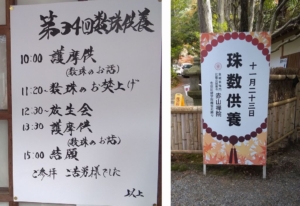 第34回数珠供養
10:00 護摩供
(数珠のお話)
11:20~ 数珠のお焚上げ
12:30~ 放生会
13:30 護摩供
(数珠のお話)
15:00 結願
ご参拝 ご苦労様でした
以上
十一月二十三日
珠数供養
赤山禅院